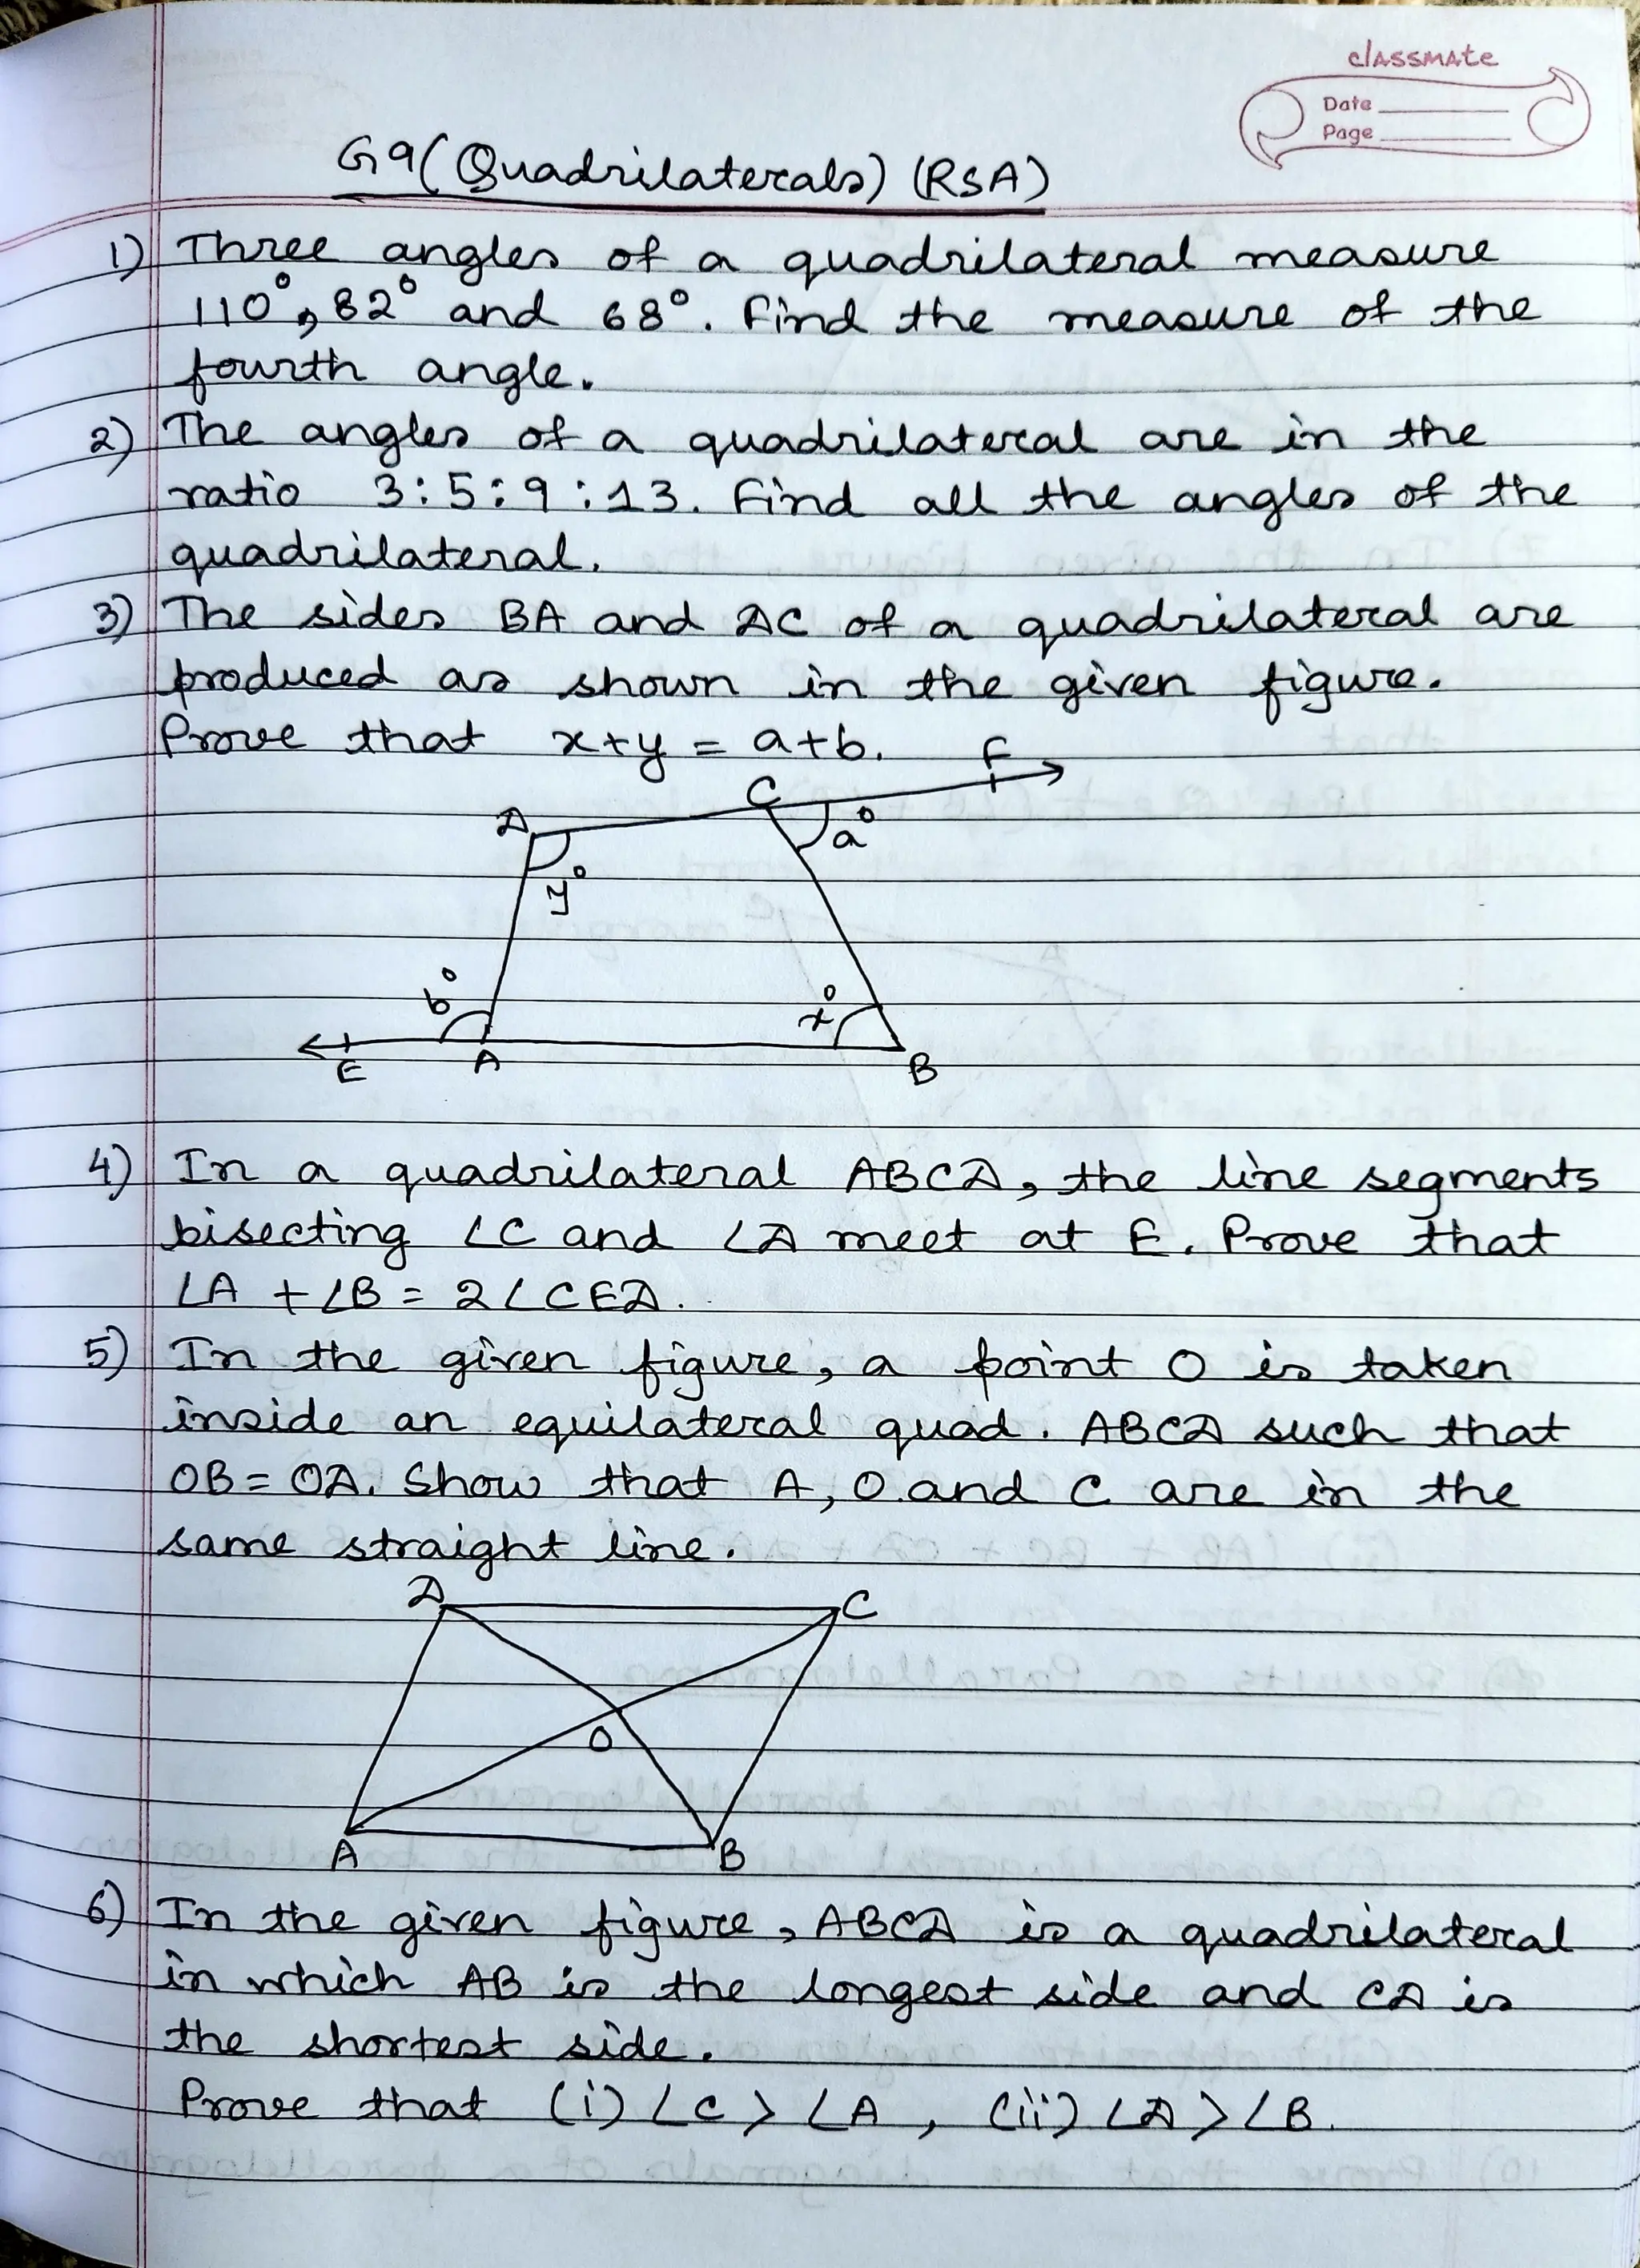 classmate
Date
Page
G9 (Quadrilaterals) (RSA)
1) Three angles of a quadrilateral measure
110°, 82° and 68°. Find the measure of the
fourth angle.
2) The angles of a quadrilateral are in the
ratio 3:5:9:13. Find all the angles of the
quadrilateral.
3) The sides BA and DC of a quadrilateral are
produced as shown in the given figure.
Prove that x+y = a+b.
F
C
D
a°
y°
b°
x°
E A B
4) In a quadrilateral ABCD, the line segments
bisecting ∠C and ∠D meet at E. Prove that
∠A + ∠B = 2∠CED.
5) In the given figure, a point O is taken
inside an equilateral quad. ABCD such that
OB = OD. Show that A, O and C are in the
same straight line.
D C
O
A B
6) In the given figure, ABCD is a quadrilateral
in which AB is the longest side and CD is
the shortest side.
Prove that (i) ∠C > ∠A, (ii) ∠D > ∠B.